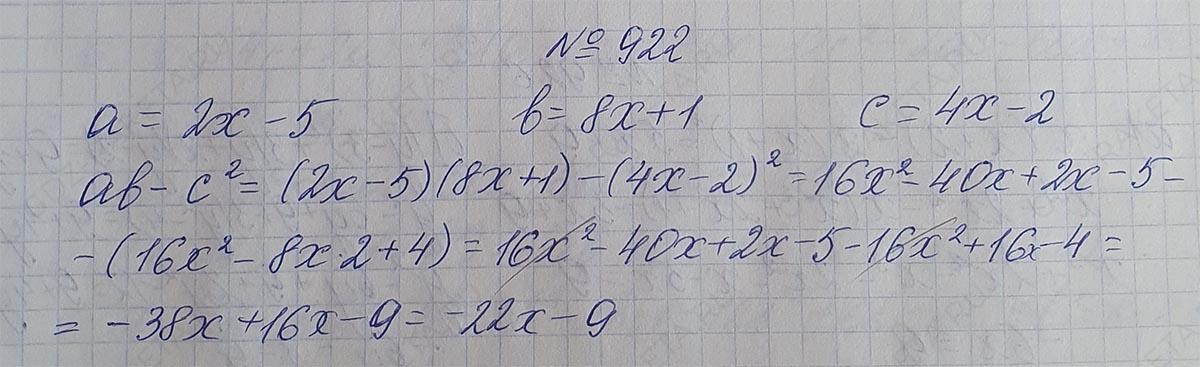 № 922
a = 2x - 5 b = 8x + 1 c = 4x - 2
ab - c² = (2x - 5)(8x + 1) - (4x - 2)² = 16x² - 40x + 2x - 5 -
- (16x² - 8x·2 + 4) = 16x² - 40x + 2x - 5 - 16x² + 16x - 4 =
= - 38x + 16x - 9 = -22x - 9